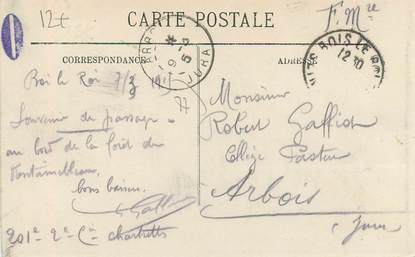 12t
CARTE POSTALE
F. Mre
CORRESPONDANCE
ADRESSE
ARBOIS
JURA
BOIS LE ROI
12 30
Bois le Roi 7/3 1915
Souvenir de passage
au bord de la forêt de
Fontainebleau,
bons baisers
201e 2e Cie
Monsieur
Robert Gaffiot
Collège Pasteur
Arbois
Jura